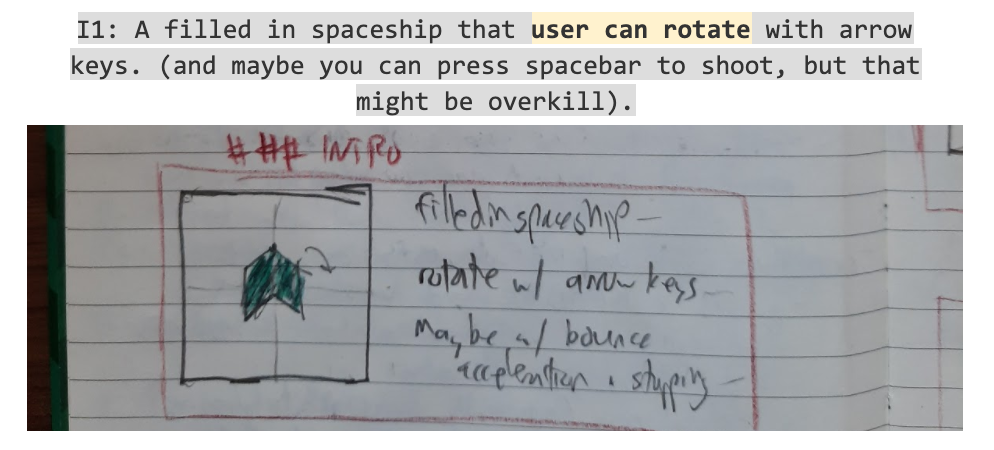 I1: A filled in spaceship that user can rotate with arrow
keys. (and maybe you can press spacebar to shoot, but that
might be overkill).
### INTRO
filled in spaceship
rotate w/ arrow keys
Maybe w/ bounce
acceleration + stopping